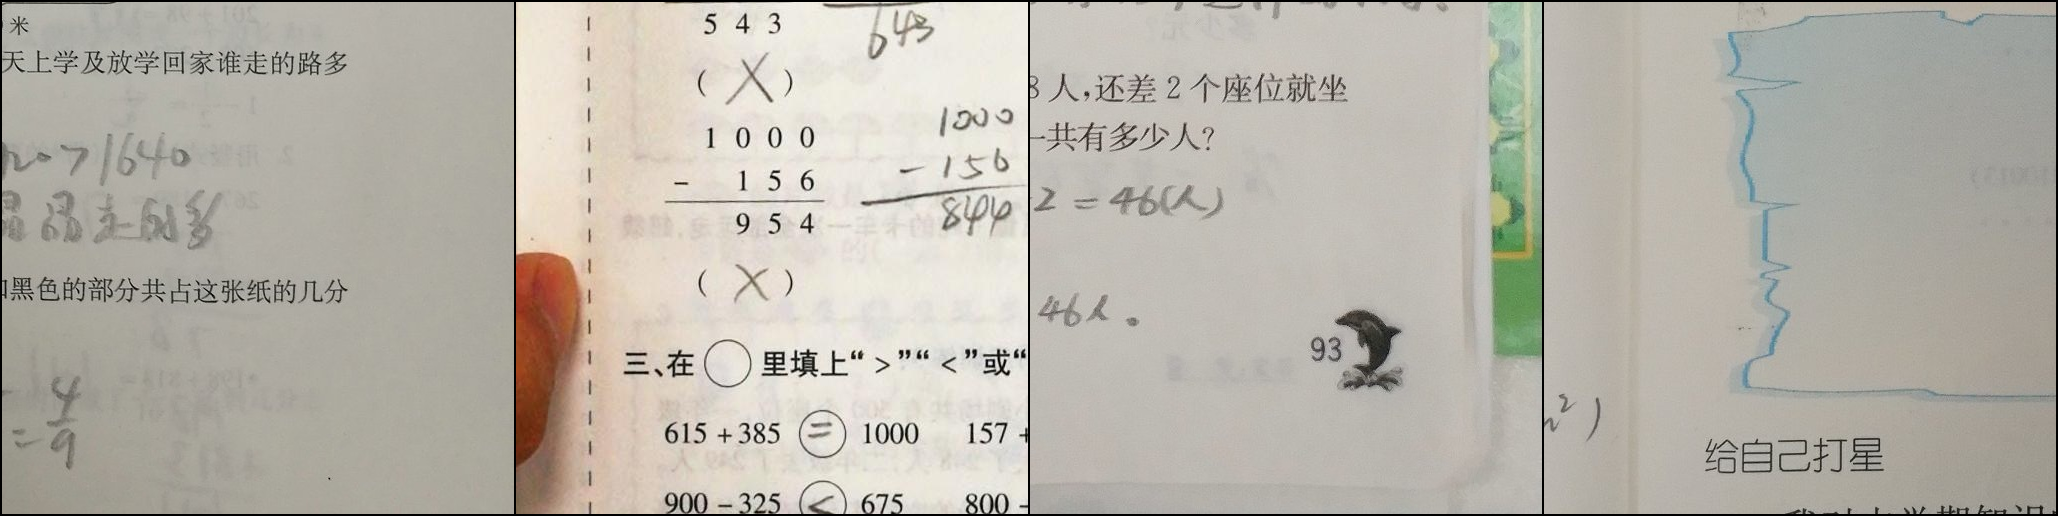 米
天上学及放学回家谁走的路多
>1640
晶晶走的多
黑色的部分共占这张纸的几分
= 4/9
5 4 3
643
( X )
1 0 0 0
- 1 5 6
9 5 4
1000
- 156
844
( X )
三、在○里填上“>”“<”或“
615+385 = 1000 157+
900-325 < 675 800-
8人,还差2个座位就坐
一共有多少人?
2=46(人)
46人。
93
²)
给自己打星